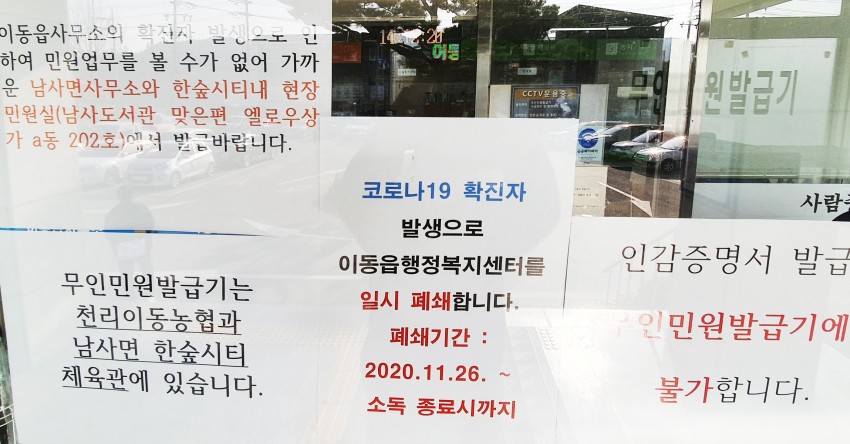 이동읍사무소의 확진자 발생으로 인
하여 민원업무를 볼 수가 없어 가까
운 남사면사무소와 한숲시티내 현장
민원실(남사도서관 맞은편 옐로우상
가 a동 202호)에서 발급바랍니다.
무인민원발급기는
천리이동농협과
남사면 한숲시티
체육관에 있습니다.
코로나19 확진자
발생으로
이동읍행정복지센터를
일시 폐쇄합니다.
폐쇄기간 :
2020.11.26. ~
소독 종료시까지
CCTV운용중
무인 원발급기
인감증명서 발급
무인민원발급기에
불가합니다.